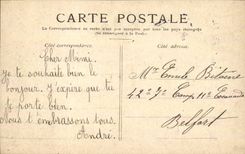 CARTE POSTALE
La Correspondance au recto n'est pas acceptée par tous les pays étrangers
(Se renseigner à la Poste)
Côté correspondance.
Côté adresse.
Cher Mimi.
Je te souhaite bien le
bonjour. J'espère que tu
te porte bien.
Nous t'embrassons tous.
André.
Mr Emile
42e 11e
Belfort